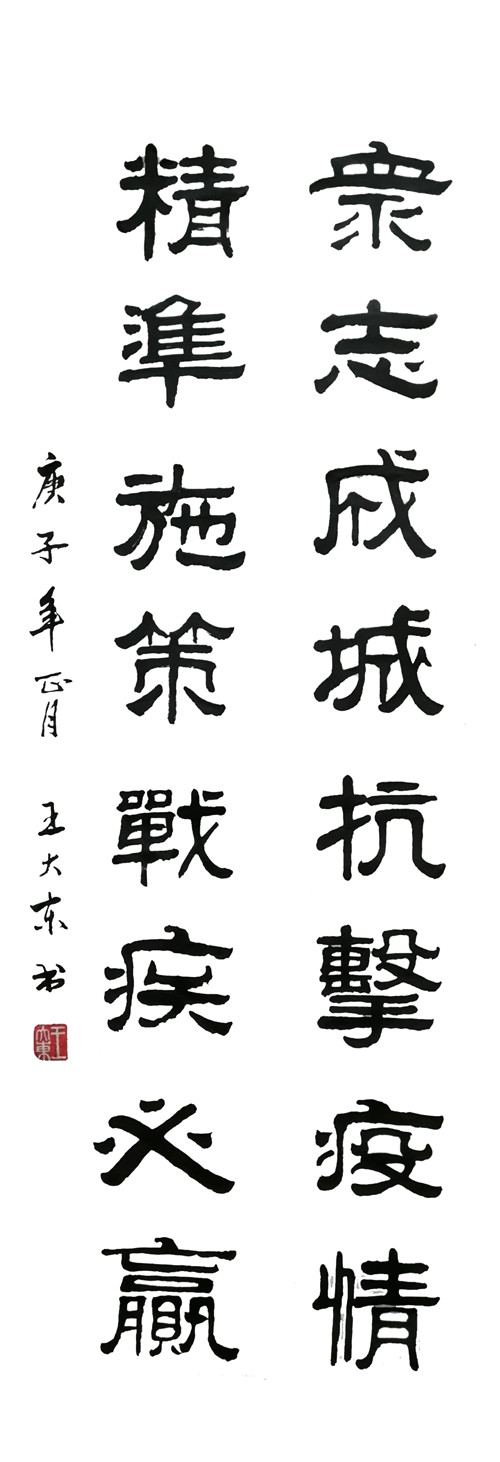 衆志成城抗擊疫情
精準施策戰疾必贏
庚子年正月 王大东书
王大東